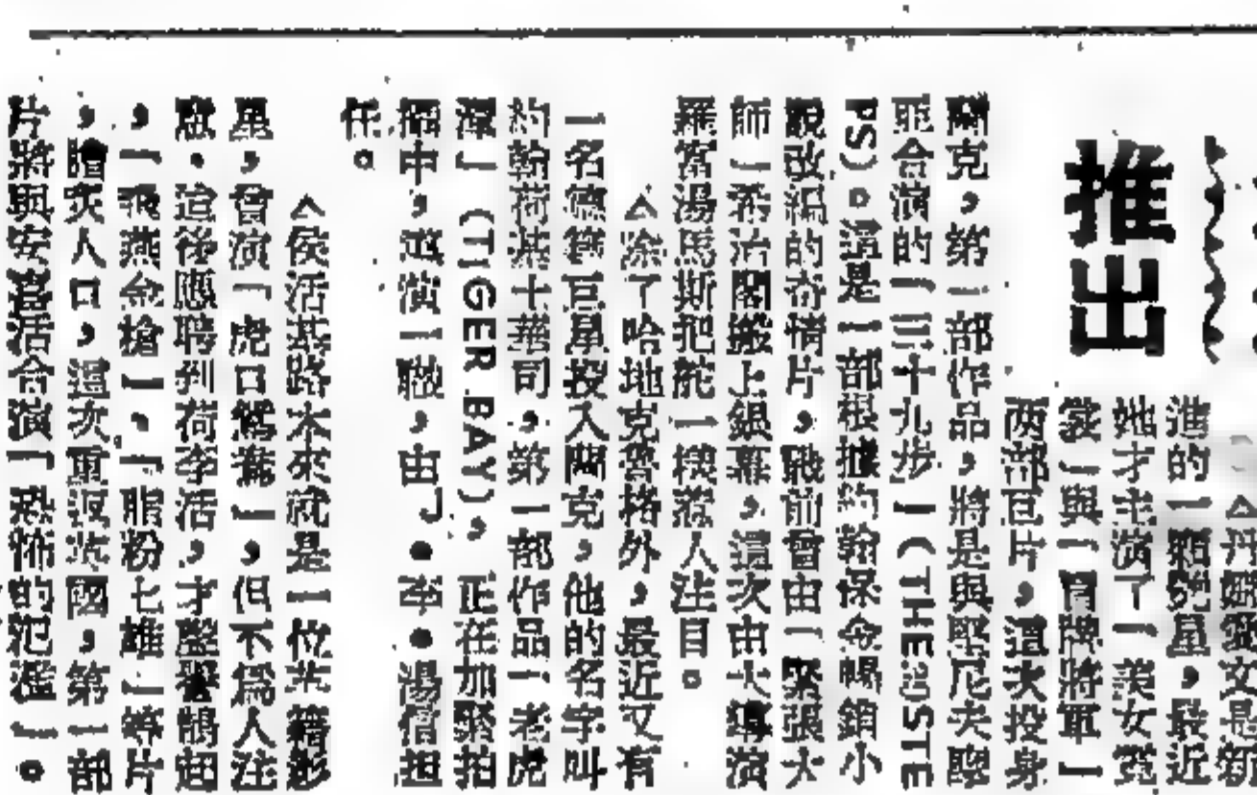 推出
△丹娜愛文是新
進的一顆艷星，最近
她才主演了「美女霓
裳」與「冒牌將軍」
两部巨片，這次投身
蘭克，第一部作品，將是與堅尼夫摩
耶合演的「三十九步」（THE 39 STE
PS）。這是一部根據約翰保命暢銷小
說改編的奇情片，戰前曾由「緊張大
師」希治閣搬上銀幕，這次由大導演
羅富湯馬斯把舵一樣惹人注目。
△除了哈地克魯格外，最近又有
一名德籍巨星投入蘭克，他的名字叫
約翰荷基士華司，第一部作品「老虎
潭」（TIGER BAY），正在加緊拍
攝中，導演一職，由J•李•湯信担
任。
△侯活基路本來就是一位英籍影
星，曾演「虎口鴛鴦」，但不爲人注
意。這後應聘到荷李活，才聲譽鵲起
，「飛燕金槍」、「脂粉七雄」等片
，膾炙人口，這次重返英國，第一部
片將與安喜活合演「恐怖的氾濫」。